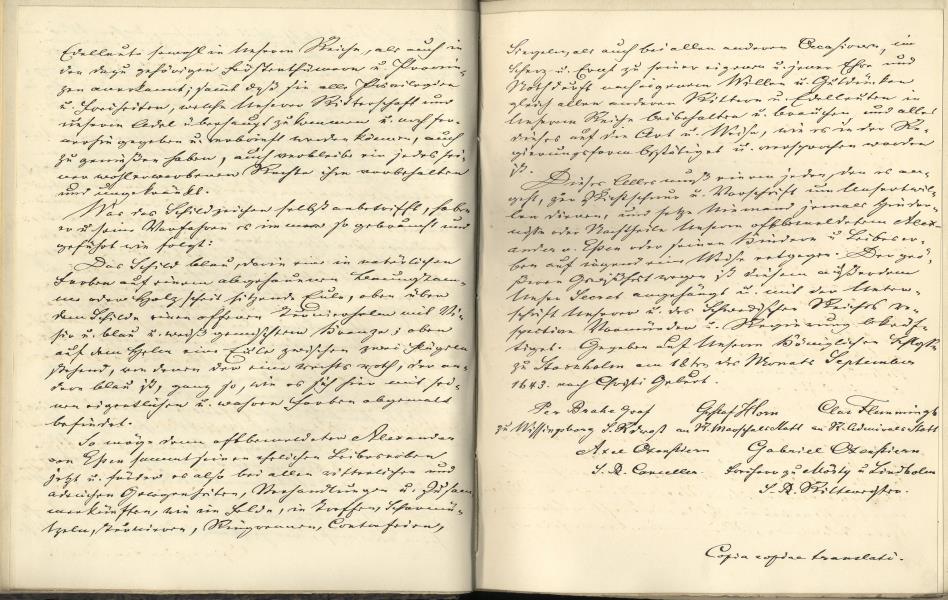 Edelleute sowohl in Unserm Reiche, als auch in
den dazu gehörigen Fürstenthümern u. Provin-
zen anerkannt; samt daß sie alle Privilegien
u. Freiheiten, welche Unserer Ritterschaft und
unserm Adel überhaupt zukommen u. noch fer-
nerhin gegeben u. werden können, auch
zu genießen haben, auch verbleibe ein jedes sei-
ner wohlerworbenen Rechte ihm vorbehalten
und ungekränkt.
Was das Schildzeichen selbst anbetrifft, haben
er u. seine Vorfahren es immer so gebraucht und
geführt wie folgt:
Das Schild blau, darin eine in natürlichen
Farben auf einem abgehauenen
oder Holzscheit sitzende Eule, oben über
dem Schilde einen offenen Turnierhelm mit
u. blau u. weiß gemischtem Kranze; oben
auf dem Helm eine Eule zwischen zwei Flügeln
stehend, von denen der eine rechts roth, der an-
dere blau ist, ganz so, wie es sich hier mit sei-
nen eigentlichen u. wahren Farben abgemalt
befindet.
So möge denn oftbemeldeter Alexander
von Essen sammt seinen ehelichen Leibeserben
jetzt u. später es also bei allen ritterlichen und
adelichen Gelegenheiten, Verhandlungen u. Zusam-
menkünften, wie im Felde, in Treffen, Scharmü-
tzeln, Turnieren, Ringrennen,
Siegeln, als auch bei allen anderen Occasionen, im
Scherz u. Ernst zu seiner eigenen u. jener Ehre und
Nothdurft nach eigenem Willen u. Gutdünken
gleich allen anderen Rittern u. Edelleuten in
Unserm Reiche beibehalten u. brauchen und alles
dieses auf die Art u. Weise, wie es in der Re-
gierungsform bestätiget u. versprochen worden
ist.
Dieses Alles muß einem jeden, den es an-
geht, zur Richtschnur u. Vorschrift um Unsertwil-
len dienen, und setze Niemand jemals Hinder-
nisse oder Nachtheile Unserm oftbemeldetem Alex-
ander v. Essen oder seinen Kindern u. Leibeser-
ben auf irgend eine Weise entgegen. Der grö-
ßeren Gewißheit wegen ist diesem außerdem
Unser Secret angehängt u. mit der Unter-
schrift Unserer u. des Schwedischen Reichs re-
spective Vormünder u. Regierung bekräf-
tiget. Gegeben auf Unserm Königlichen Schloße
zu Stockholm am 18ten des Monats September
1643. nach Christi Geburt.
Per Brahe Graf Gustaf Horn Clas Flemming
zu Wissingsborg S. R. Drost an R. Marschalls Statt an R. Admirals Statt
Axel Oxenstiern Gabriel Oxenstiern
S. R. Canceller. Freiherr zu Mörby u. Lindholm
S. R. Schatzmeister.
Copia copiae translati.